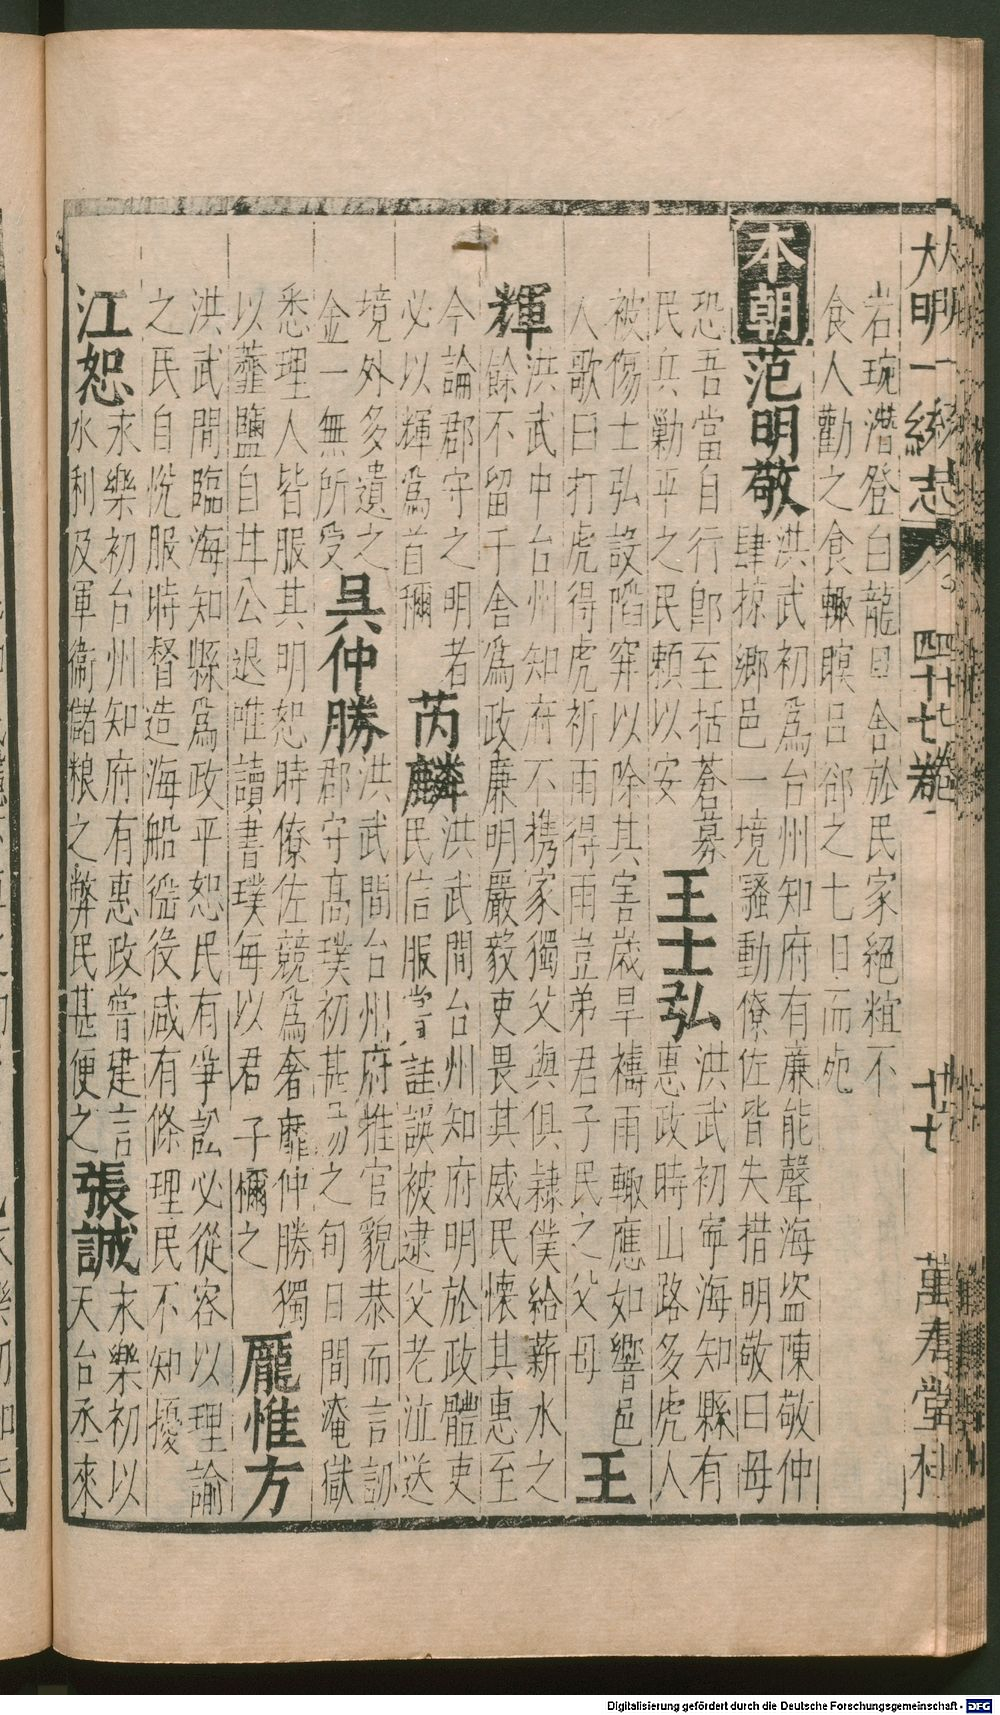 大明一統志 四十七卷 十七 萬壽堂刊
岩琬潛登白龍旦舍於民家絕粒不
食人勸之食輙瞑目郤之七日而死
本朝范明敬 洪武初為台州知府有廉能聲海盗陳敬仲
肆掠鄉邑一境騷動僚佐皆失措明敬曰毋
恐吾當自行即至括蒼募
民兵勦平之民頼以安 王士弘 洪武初寧海知縣有
惠政時山路多虎人
被傷士弘設陷穽以除其害歲旱禱雨輙應如響邑
人歌曰打虎得虎祈雨得雨豈弟君子民之父母 王
輝 洪武中台州知府不携家獨父與俱隷僕給薪水之
餘不留千舍為政廉明嚴毅吏畏其威民懐其惠至
今論郡守之明者
必以輝為首稱 芮麟 洪武間台州知府明於政體吏
民信服嘗詿誤被逮父老泣送
境外多遺之
金一無所受 吳仲勝 洪武間台州府推官貌恭而言訒
郡守高璞初甚易之旬日間淹獄
悉理人皆服其明恕時僚佐競為奢靡仲勝獨
以虀鹽自甘公退唯讀書璞每以君子稱之 龎惟方
洪武間臨海知縣為政平恕民有爭訟必從容以理諭
之民自悅服時督造海船徭役咸有條理民不知擾
江恕 永樂初台州知府有惠政嘗建言
水利及軍衞儲粮之弊民甚便之 張誠 永樂初以
天台丞來
Digitalisierung gefördert durch die Deutsche Forschungsgemeinschaft - DFG